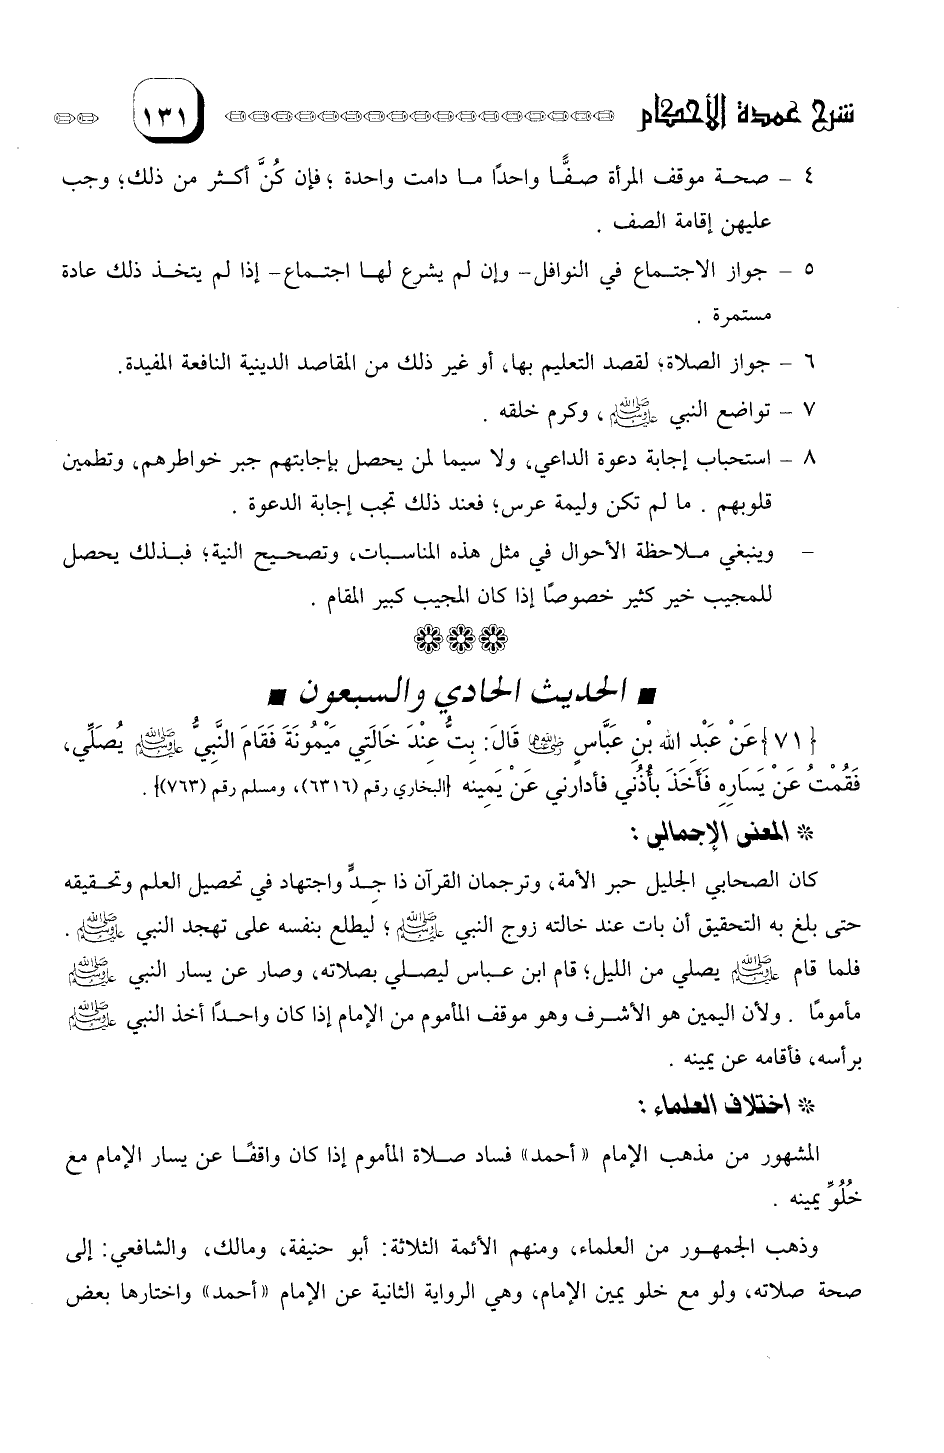 شرح عمدة الأحكام ١٣١
٤ - صحة موقف المرأة صفًّا واحدًا ما دامت واحدة ؛ فإن كُنَّ أكثر من ذلك؛ وجب
عليهن إقامة الصف .
٥ - جواز الاجتماع في النوافل- وإن لم يشرع لها اجتماع- إذا لم يتخذ ذلك عادة
مستمرة .
٦ - جواز الصلاة؛ لقصد التعليم بها، أو غير ذلك من المقاصد الدينية النافعة المفيدة.
٧ - تواضع النبي ﷺ ، وكرم خلقه .
٨ - استحباب إجابة دعوة الداعي، ولا سيما لمن يحصل بإجابتهم جبر خواطرهم، وتطمين
قلوبهم . ما لم تكن وليمة عرس؛ فعند ذلك تجب إجابة الدعوة .
- وينبغي ملاحظة الأحوال في مثل هذه المناسبات، وتصحيح النية؛ فبذلك يحصل
للمجيب خير كثير خصوصًا إذا كان المجيب كبير المقام .
■ الحديث الحادي والسبعون ■
{٧١}عَنْ عَبْدِ الله بْنِ عَبَّاسٍ رضي الله عنهما قَالَ: بِتُّ عِنْدَ خَالَتِي مَيْمُونَةَ فَقَامَ النَّبِيُّ ﷺ يُصَلِّي،
فَقُمْتُ عَنْ يَسَارِهِ فَأَخَذَ بأُذُنِي فأدارني عَنْ يَمِينه {البخاري رقم (٦٣١٦)، ومسلم رقم (٧٦٣)} .
* المعنى الإجمالي :
كان الصحابي الجليل حبر الأمة، وترجمان القرآن ذا جِدٍّ واجتهاد في تحصيل العلم وتحقيقه
حتى بلغ به التحقيق أن بات عند خالته زوج النبي ﷺ ؛ ليطلع بنفسه على تهجد النبي ﷺ .
فلما قام ﷺ يصلي من الليل؛ قام ابن عباس ليصلي بصلاته، وصار عن يسار النبي ﷺ
مأمومًا . ولأن اليمين هو الأشرف وهو موقف المأموم من الإمام إذا كان واحدًا أخذ النبي ﷺ
برأسه، فأقامه عن يمينه .
* اختلاف العلماء :
المشهور من مذهب الإمام «أحمد» فساد صلاة المأموم إذا كان واقفًا عن يسار الإمام مع
خُلُوِّ يمينه .
وذهب الجمهور من العلماء، ومنهم الأئمة الثلاثة: أبو حنيفة، ومالك، والشافعي: إلى
صحة صلاته، ولو مع خلو يمين الإمام، وهي الرواية الثانية عن الإمام «أحمد» واختارها بعض